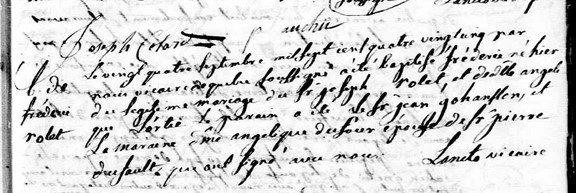 Joseph Cotard
B. de Le vingt quatre septembre mil sept cent quatre vingt un par
nous vicaire a été baptisé frédéric né hier
frédéric du legitime mariage du Sr joseph rolet, et de delle angeli
rolet que le parain a été le Sr jean johansson, et
La maraine Dme angelique dufour épouse de Sr pierre
dufault, qui ont signé avec nous. Lancto vicaire